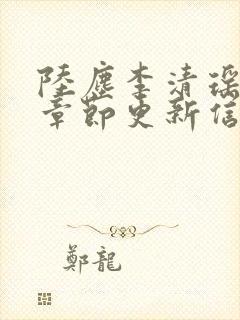 陸塵李清瑤
章節更新信
鄭龍